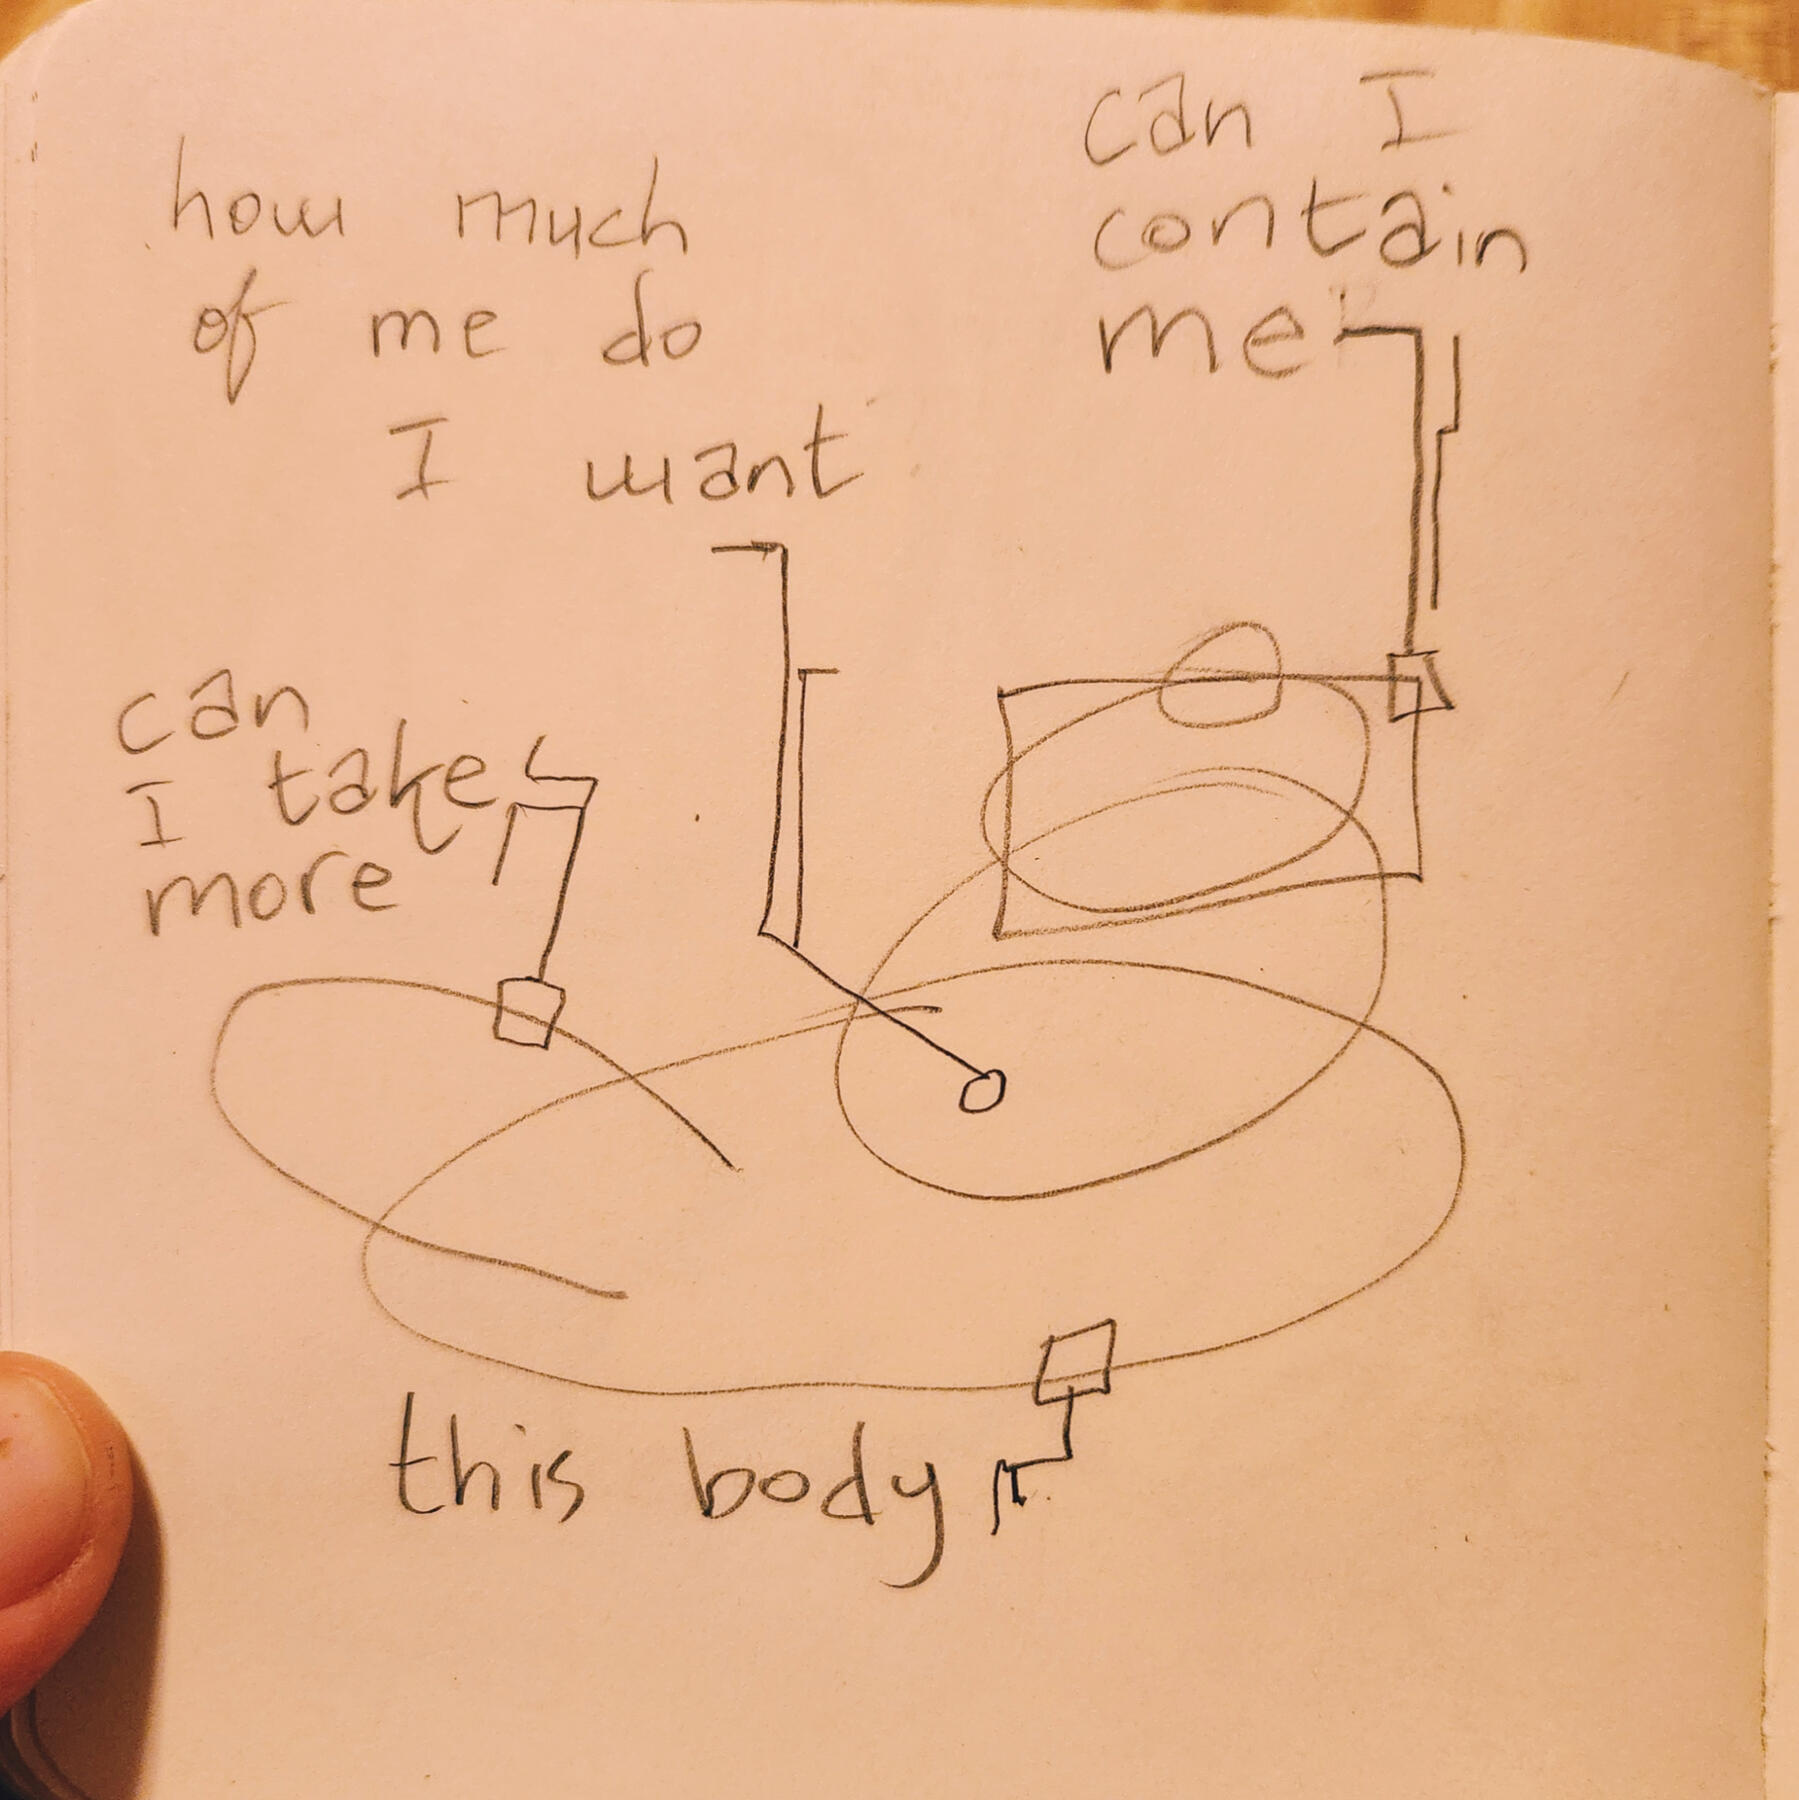 how much
of me do
I want
can I
contain
me
can
I take
more
this body